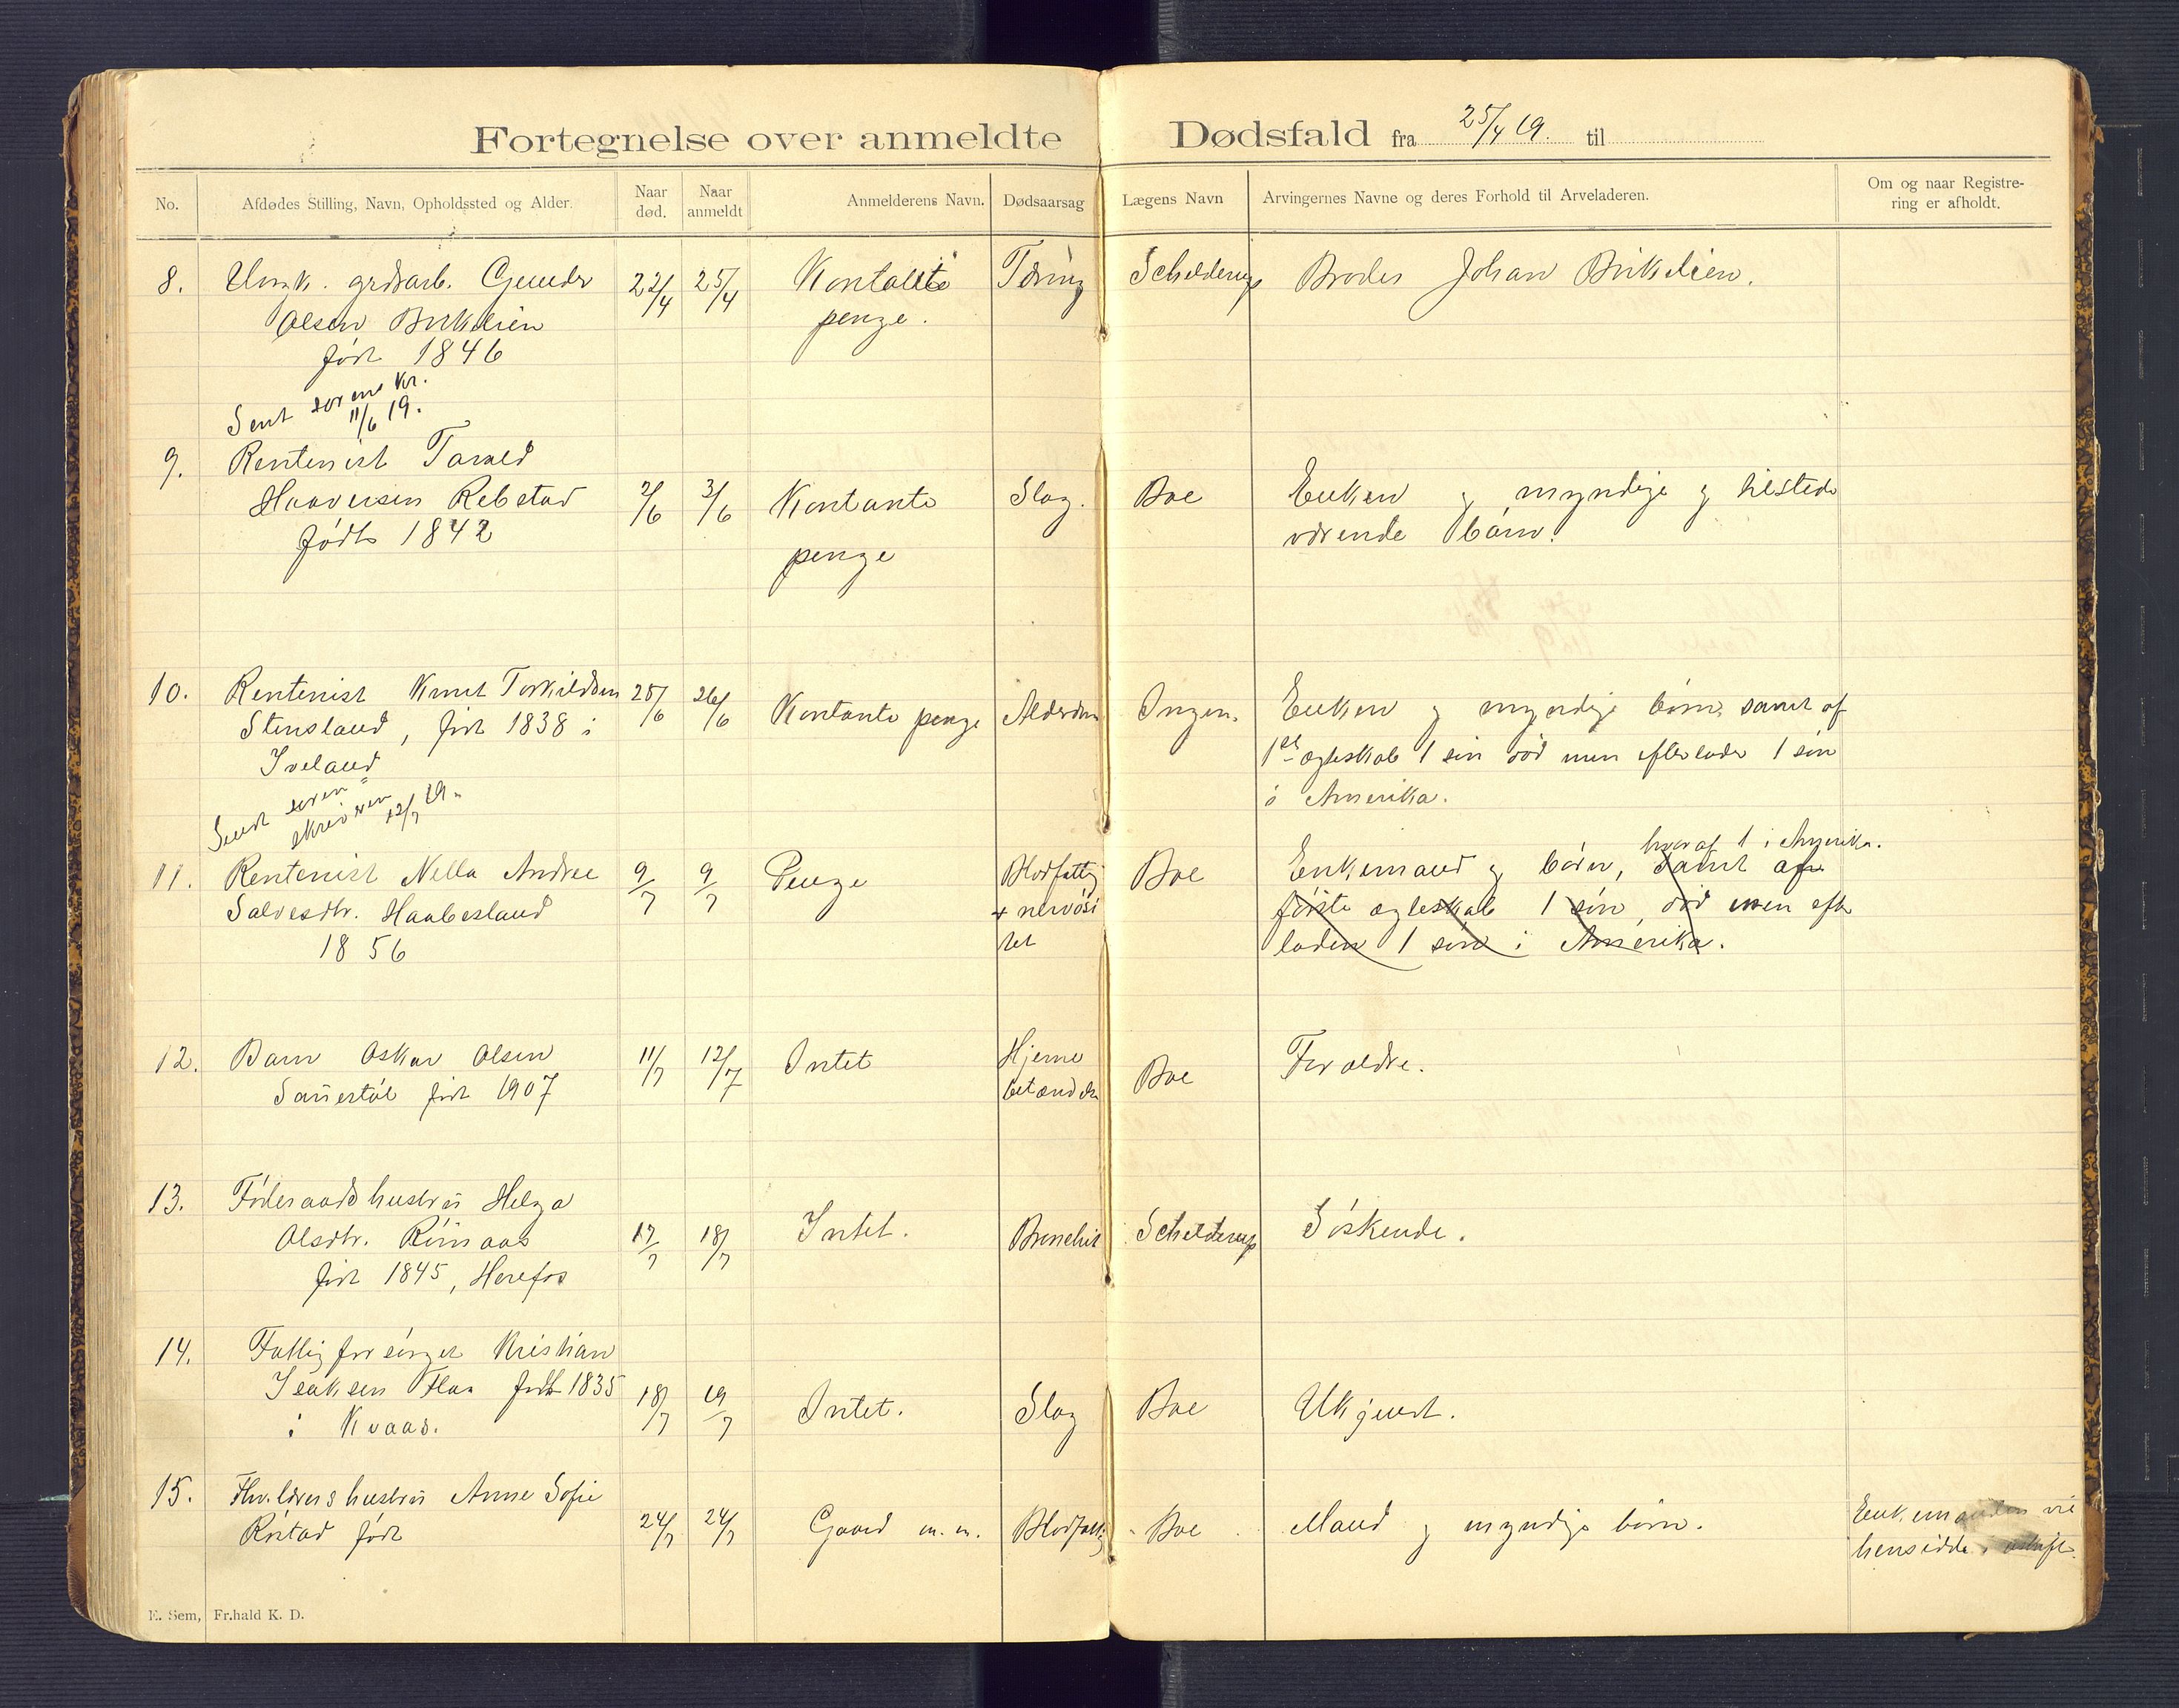 Fortegnelse over anmeldte Dødsfald fra 25/4 19. til
No. Afdødes Stilling, Navn, Opholdssted og Alder. Naar død. Naar anmeldt Anmelderens Navn. Dødsaarsag Lægens Navn Arvingernes Navne og deres Forhold til Arveladeren. Om og naar Registrering er afholdt.
8. Ungk. grdsarb. Gunder 22/4 25/4 Kontante Tæring Schelderup Broder Johan Birkelien.
Olsen Birkelien penge.
født 1846
Sent soren kr.
11/6 19.
9. Rentenist Tarald
Haaversen Rebstad 2/6 3/6 Kontante Slag. Boe Enken og myndige og tilstede
født 1842 værende børn.
penge
10. Rentenist Knut Torkildsen 25/6 26/6 Kontante penge Alderdom Ingen. Enken og myndige børn, samt af
Stensland, født 1838 i 1ste ægteskab 1 søn død men efterlader 1 søn
Iveland i Amerika.
Sendt soren
skriveren 12/7 19.
hvoraf 1 i Amerika.
11. Rentenist Nella Andrea 9/7 9/7 Penge Blodfattig Boe Enkemand og børn, samt af
Salvesdtr. Haabesland + nervøsi første ægteskab 1 søn, død men efter
1856 tet lader 1 søn i Amerika.
12. Barn Oskar Olsen 11/7 12/7 Intet Hjerne Boe Forældre.
født 1907 betændelse
13. Føderaadshustru Helga
Olsdtr. 17/7 18/7 Intet. Schelderup Søskende.
født 1845, Herefos
14. Fattigforsørget Kristian
Isaksen Flaa født 1835 18/7 19/7 Intet. Slag Boe Ukjendt.
i Kvaas.
15. hustru Anne Sofie
Røstad født 24/7 24/7 Gaard m.m. Blodfattig Boe Mand og myndige børn. Enkemanden vil
hensidde i uskifte.
E. Sem, Fr.hald K. D.